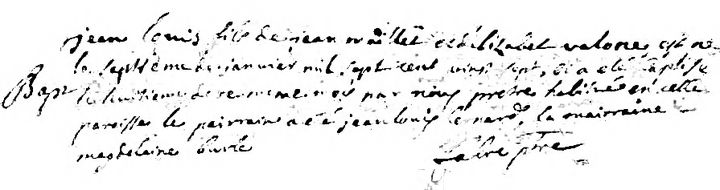 jean louis fils de jean maillet et d'elizabet valone est né
le septiême de janvier mil sept cent vint sept, et a été baptisé
Bap: le huitieme de ce meme mois par nous pretre habitué en cette
paroisse le pairrain a été jean louis lenard, la mairraine
magdelaine ptre